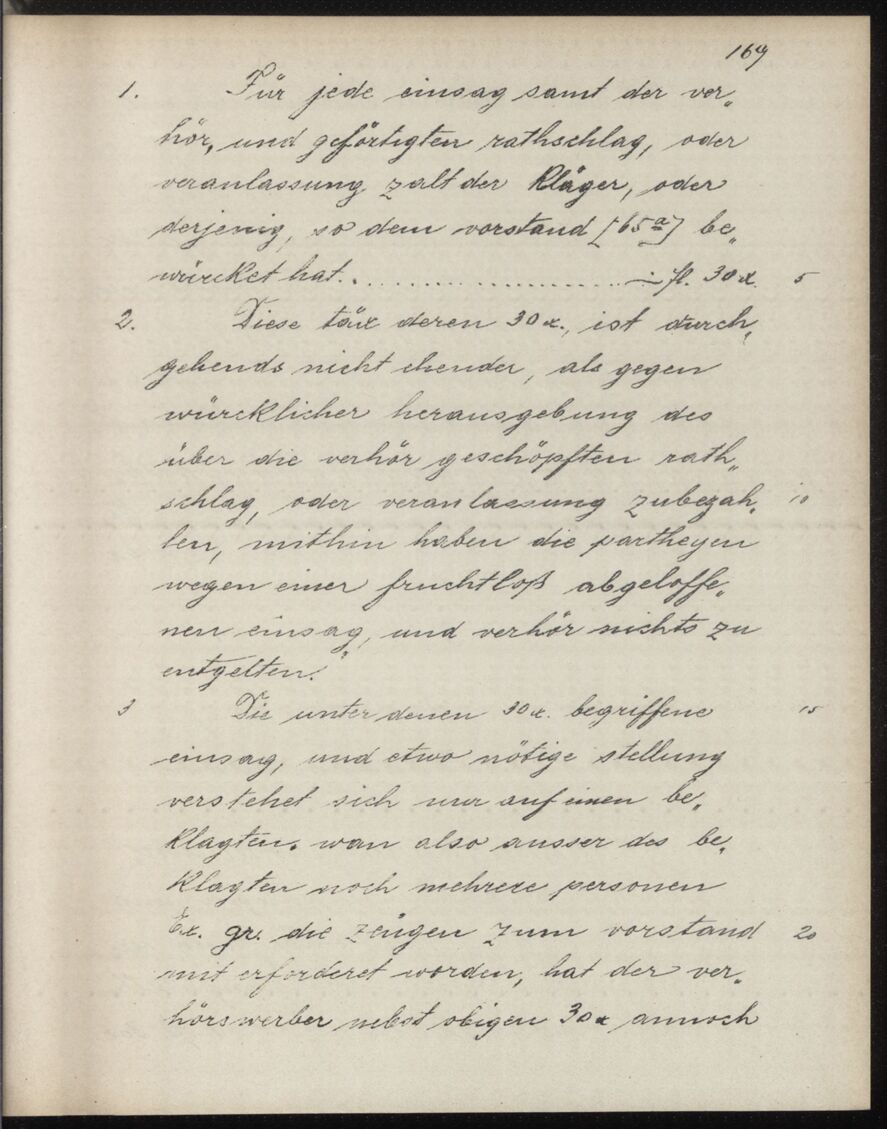 169
1. Für jede einsag samt der ver„
hör, und geförtigten rathschlag, oder
veranlassung zalt der Kläger, oder
derjenig, so dem vorstand [65a] be„
würcket hat. . . . . . . . . . . . . . . . . . . . fl. 30 x. 5
2. Diese täx deren 30 x., ist durch„
gehends nicht ehender, als gegen
würcklicher herausgebung des
über die verhör geschöpften rath„
schlag, oder veranlassung zubezah„ 10
len, mithin haben die partheyen
wegen einer fruchtloß abgeloffe„
nen einsag, und verhör nichts zu
entgelten.
3 Die unter denen 30 x. begriffene 15
einsag, und etwo nötige stellung
verstehet sich nur auf einen be„
klagten. wan also ausser des be„
klagten noch mehrere personen
Ex. gr. die zeügen zum vorstand 20
mit erforderet worden, hat der ver„
hörswerber nebst obigen 30 x annoch